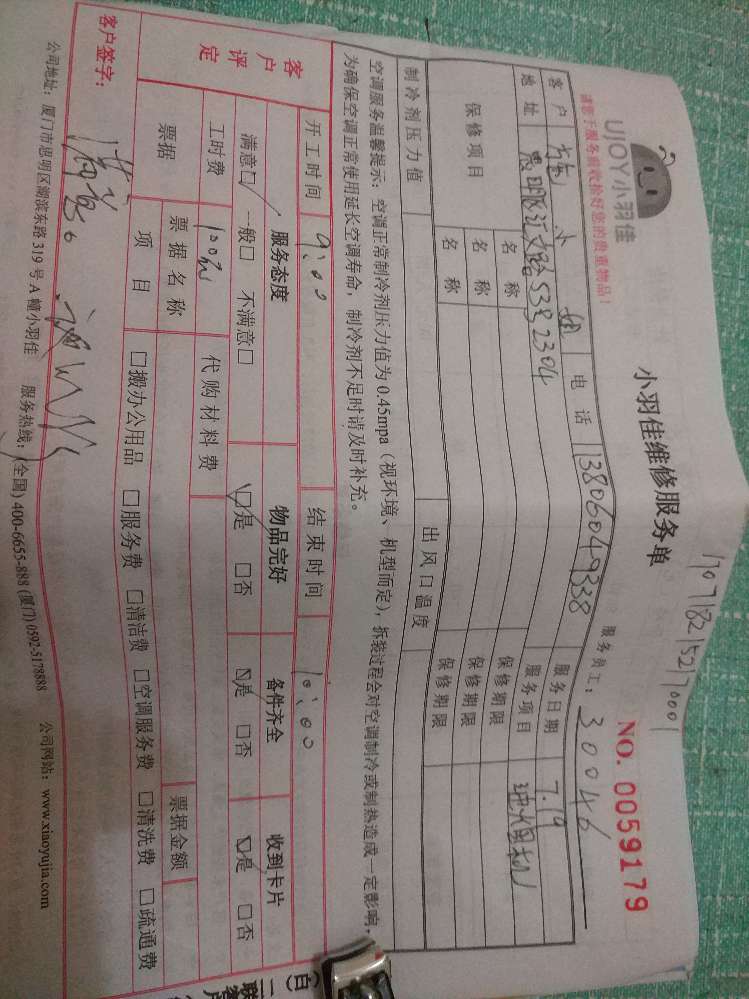 1707182152170001
UJOY小羽佳
请您于服务前收拾好您的贵重物品!
小羽佳维修服务单
NO. 0059179
服务员工: 30046
客户 小姐 电话 13806049338 服务日期 7.19
地址 思明区 538 2304 服务项目
保修项目 名称 保修期限
名称 保修期限
名称 保修期限
制冷剂压力值 出风口温度
空调服务温馨提示: 空调正常制冷剂压力值为0.45mpa (视环境、机型而定), 拆装过程会对空调制冷或制热造成一定影响,
为确保空调正常使用延长空调寿命, 制冷剂不足时请及时补充。
开工时间 9:00 结束时间 10:00
客户评定 服务态度 物品完好 备件齐全 收到卡片
满意□ 一般□ 不满意□ □是 □否 □是 □否 □是 □否
工时费 100元 代购材料费
票据 票据名称 票据金额
项目 □搬办公用品 □服务费 □清洁费 □空调服务费 □清洗费 □疏通费
客户签字:
公司地址: 厦门市思明区湖滨东路319号A幢小羽佳 服务热线: (全国) 400-6655-888 (厦门) 0592-5178888 公司网站: www.xiaoyujia.com
(白)
一联
客户